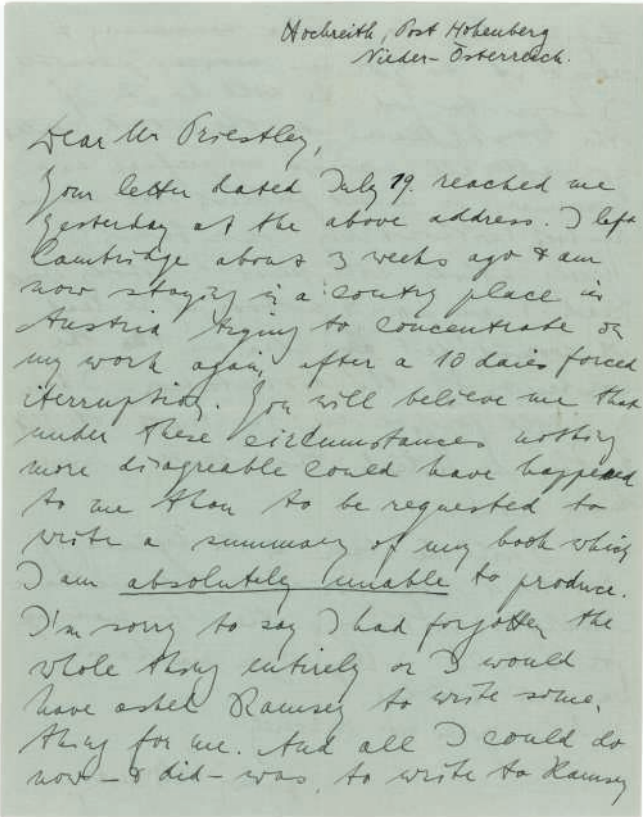 Hochreith, Post Hohenberg
Nieder-Österreich.
Dear Mr Priestley,
Your letter dated July 19. reached me
yesterday at the above address. I left
Cambridge about 3 weeks ago & am
now staying in a contry place in
Austria trying to concentrate on
my work again, after a 10 daies forced
iterruption. You will believe me that
under these circumstances nothing
more disagreable could have happened
to me than to be requested to
write a summary of my book which
I am absolutely unable to produce.
I'm sorry to say I had forgotten the
whole thing entirely or I would
have asked Ramsey to write some-
thing for me. And all I could do
now – & did – was, to write to Ramsey